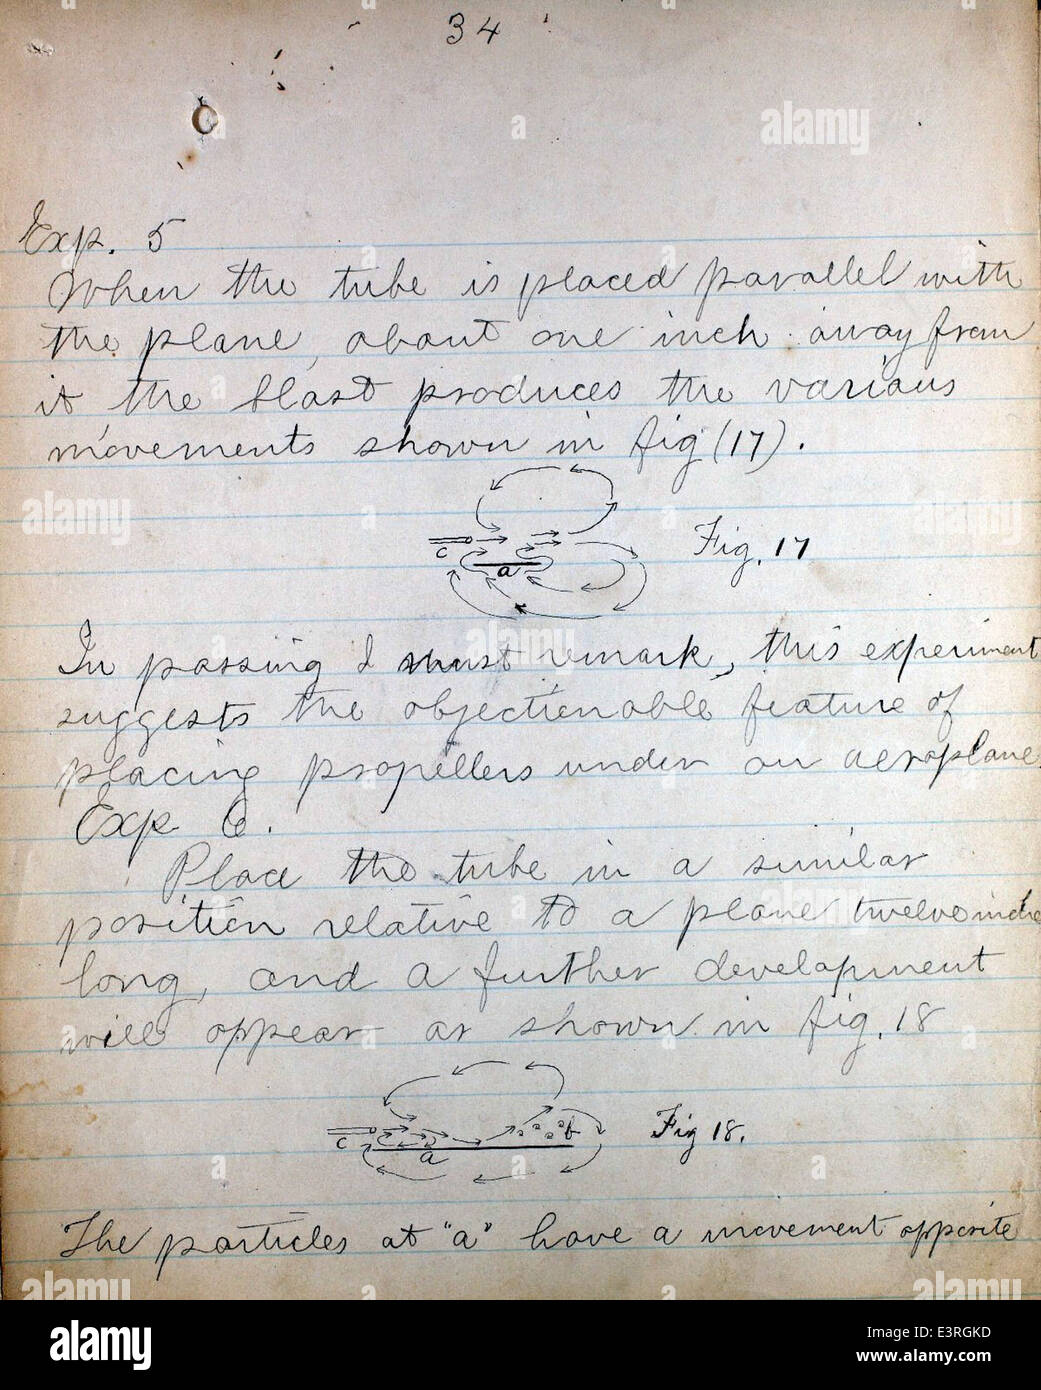 34
Exp. 5
When the tube is placed parallel with
the plane, about one inch away from
it the blast produces the various
movements shown in fig (17).
c
a
Fig. 17
In passing I must remark, this experiment
suggests the objectionable feature of
placing propellers under an aeroplane
Exp 6.
Place the tube in a similar
position relative to a plane twelve inche
long, and a further development
will appear as shown in fig. 18
c
a
b
Fig 18.
The particles at "a" have a movement opposite
alamy
a
alamy
Image ID: E3RGKD
www.alamy.com